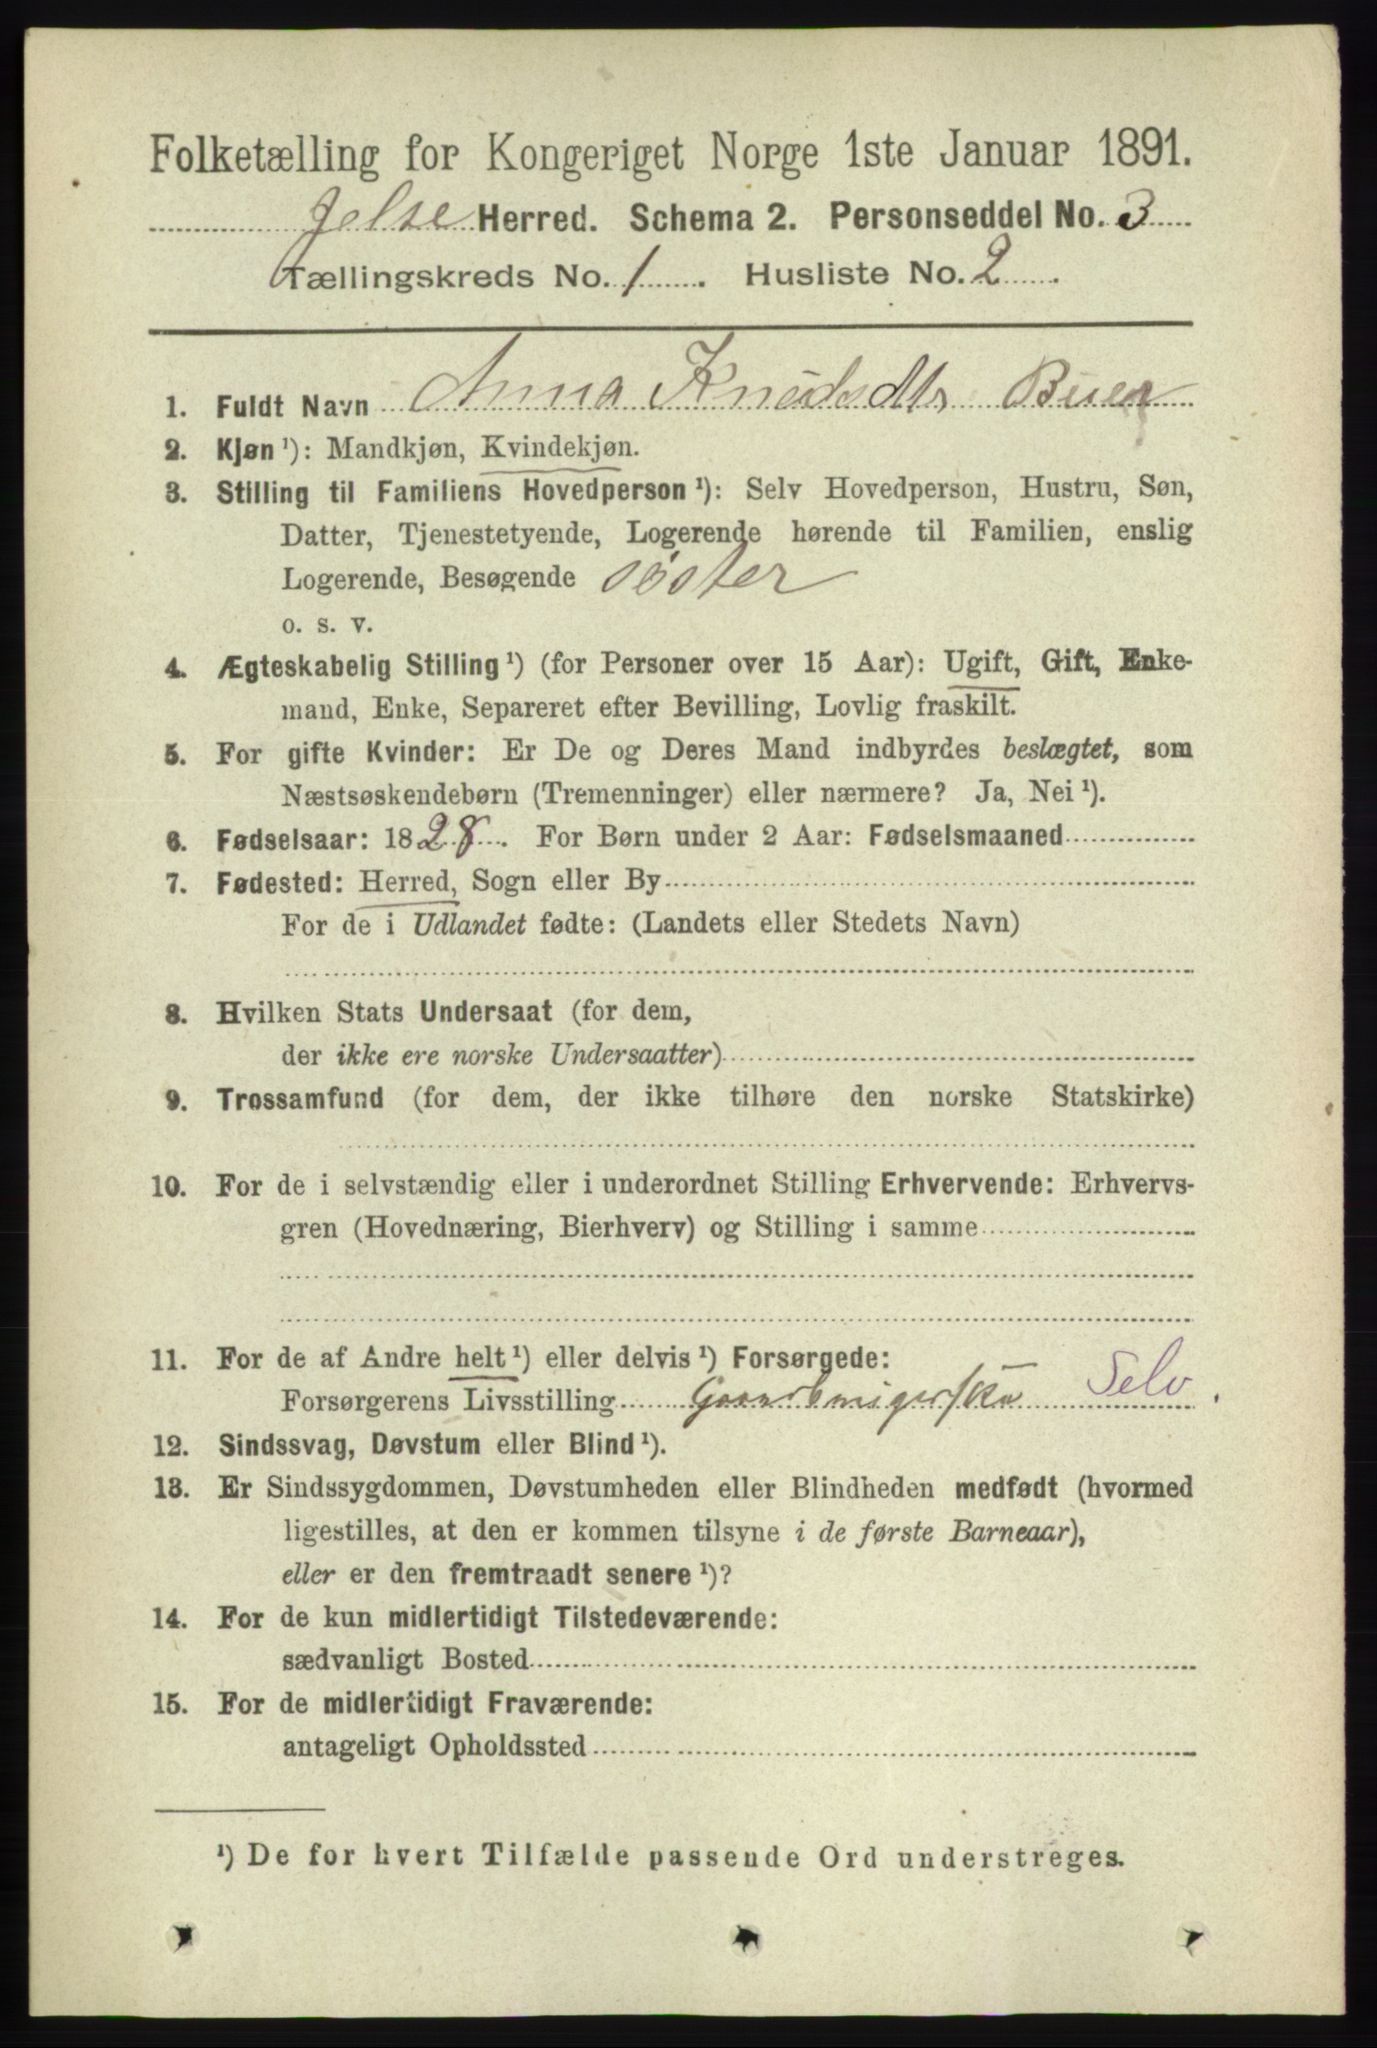 Folketælling for Kongeriget Norge 1ste Januar 1891.
Jelse Herred. Schema 2. Personseddel No. 3
Tællingskreds No. 1. Husliste No. 2.
1. Fuldt Navn Anna Knudsdtr Buer
2. Kjøn ¹): Mandkjøn, Kvindekjøn.
3. Stilling til Familiens Hovedperson ¹): Selv Hovedperson, Hustru, Søn,
Datter, Tjenestetyende, Logerende hørende til Familien, enslig
Logerende, Besøgende søster
o. s. v.
4. Ægteskabelig Stilling ¹) (for Personer over 15 Aar): Ugift, Gift, Enke-
mand, Enke, Separeret efter Bevilling, Lovlig fraskilt.
5. For gifte Kvinder: Er De og Deres Mand indbyrdes beslægtet, som
Næstsøskendebørn (Tremenninger) eller nærmere? Ja, Nei ¹).
6. Fødselsaar: 1828. For Børn under 2 Aar: Fødselsmaaned
7. Fødested: Herred, Sogn eller By
For de i Udlandet fødte: (Landets eller Stedets Navn)
8. Hvilken Stats Undersaat (for dem,
der ikke ere norske Undersaatter)
9. Trossamfund (for dem, der ikke tilhøre den norske Statskirke)
10. For de i selvstændig eller i underordnet Stilling Erhvervende: Erhvervs-
gren (Hovednæring, Bierhverv) og Stilling i samme
11. For de af Andre helt ¹) eller delvis ¹) Forsørgede:
Forsørgerens Livsstilling Selv.
12. Sindssvag, Døvstum eller Blind ¹).
13. Er Sindssygdommen, Døvstumheden eller Blindheden medfødt (hvormed
ligestilles, at den er kommen tilsyne i de første Barneaar),
eller er den fremtraadt senere ¹)?
14. For de kun midlertidigt Tilstedeværende:
sædvanligt Bosted
15. For de midlertidigt Fraværende:
antageligt Opholdssted
¹) De for hvert Tilfælde passende Ord understreges.